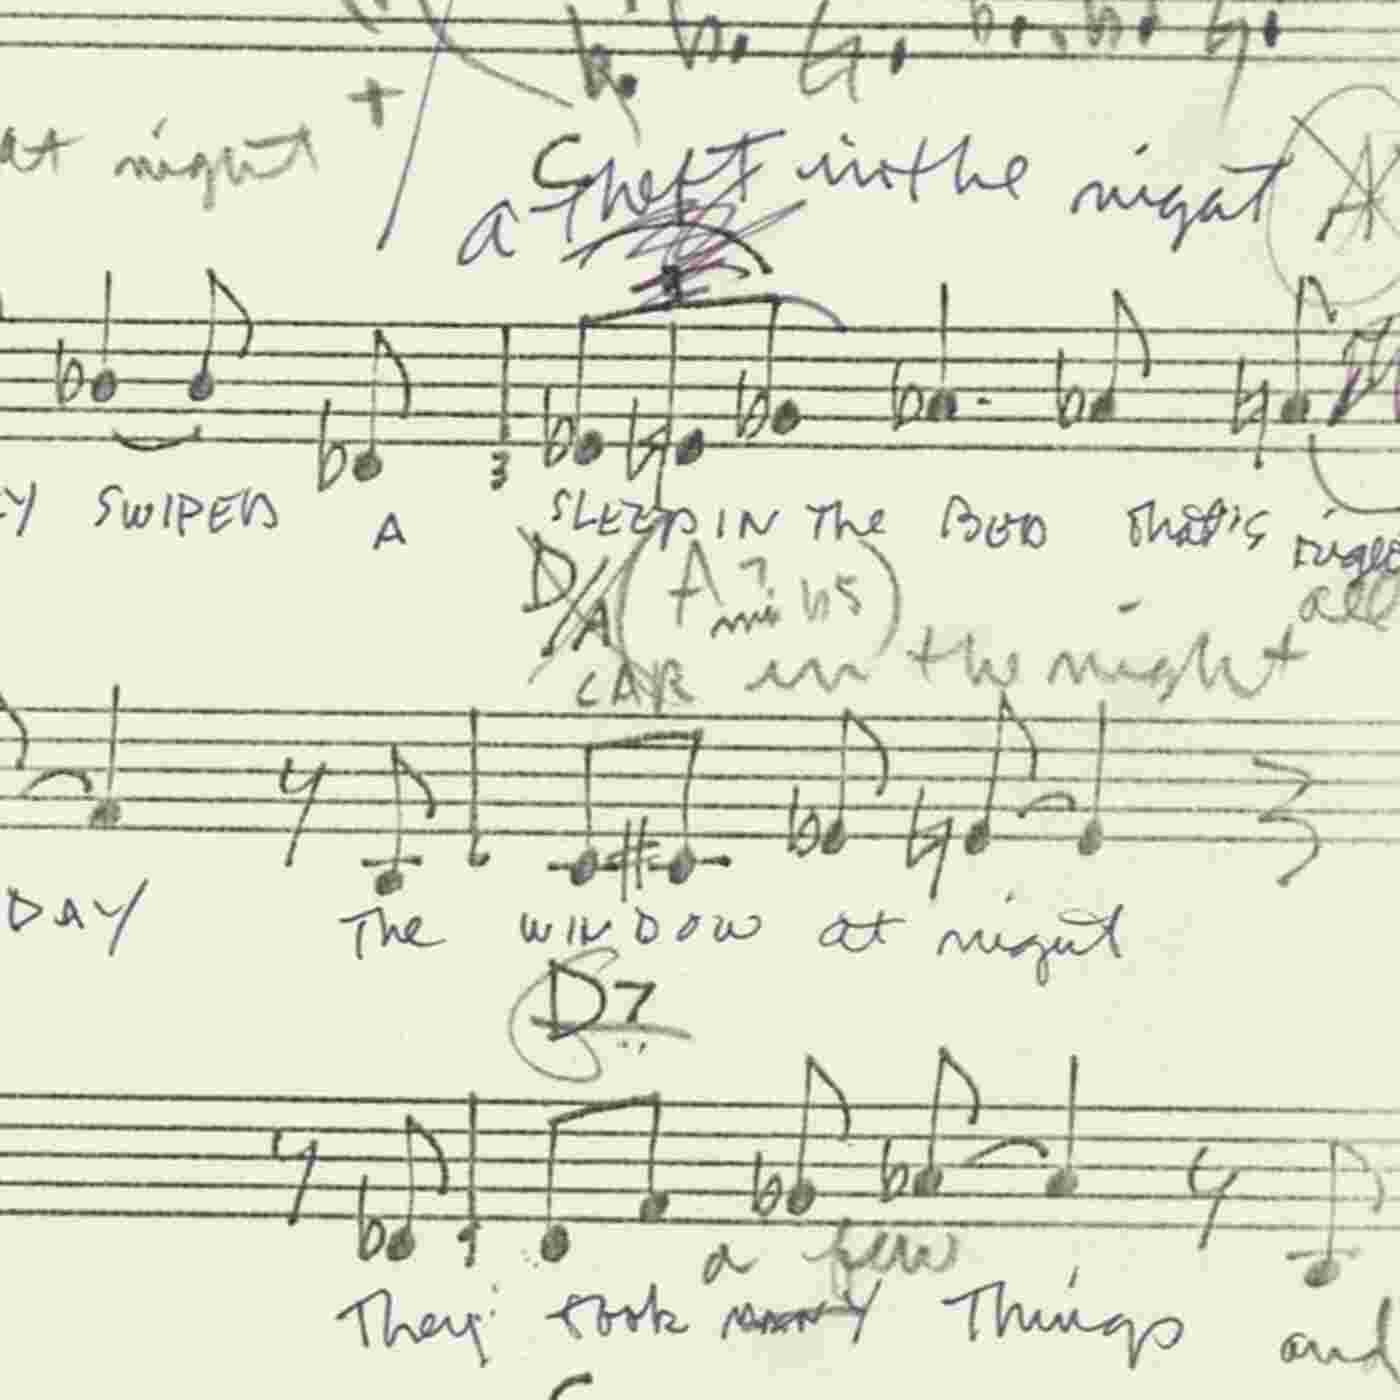 at night +
a Theft in the night A
SWIPED A SLEEP IN The BED That's
D/A (A mi 7 b5) all
CAR in the night
DAY The WINDOW at night
D7
a few
They took MANY Things and